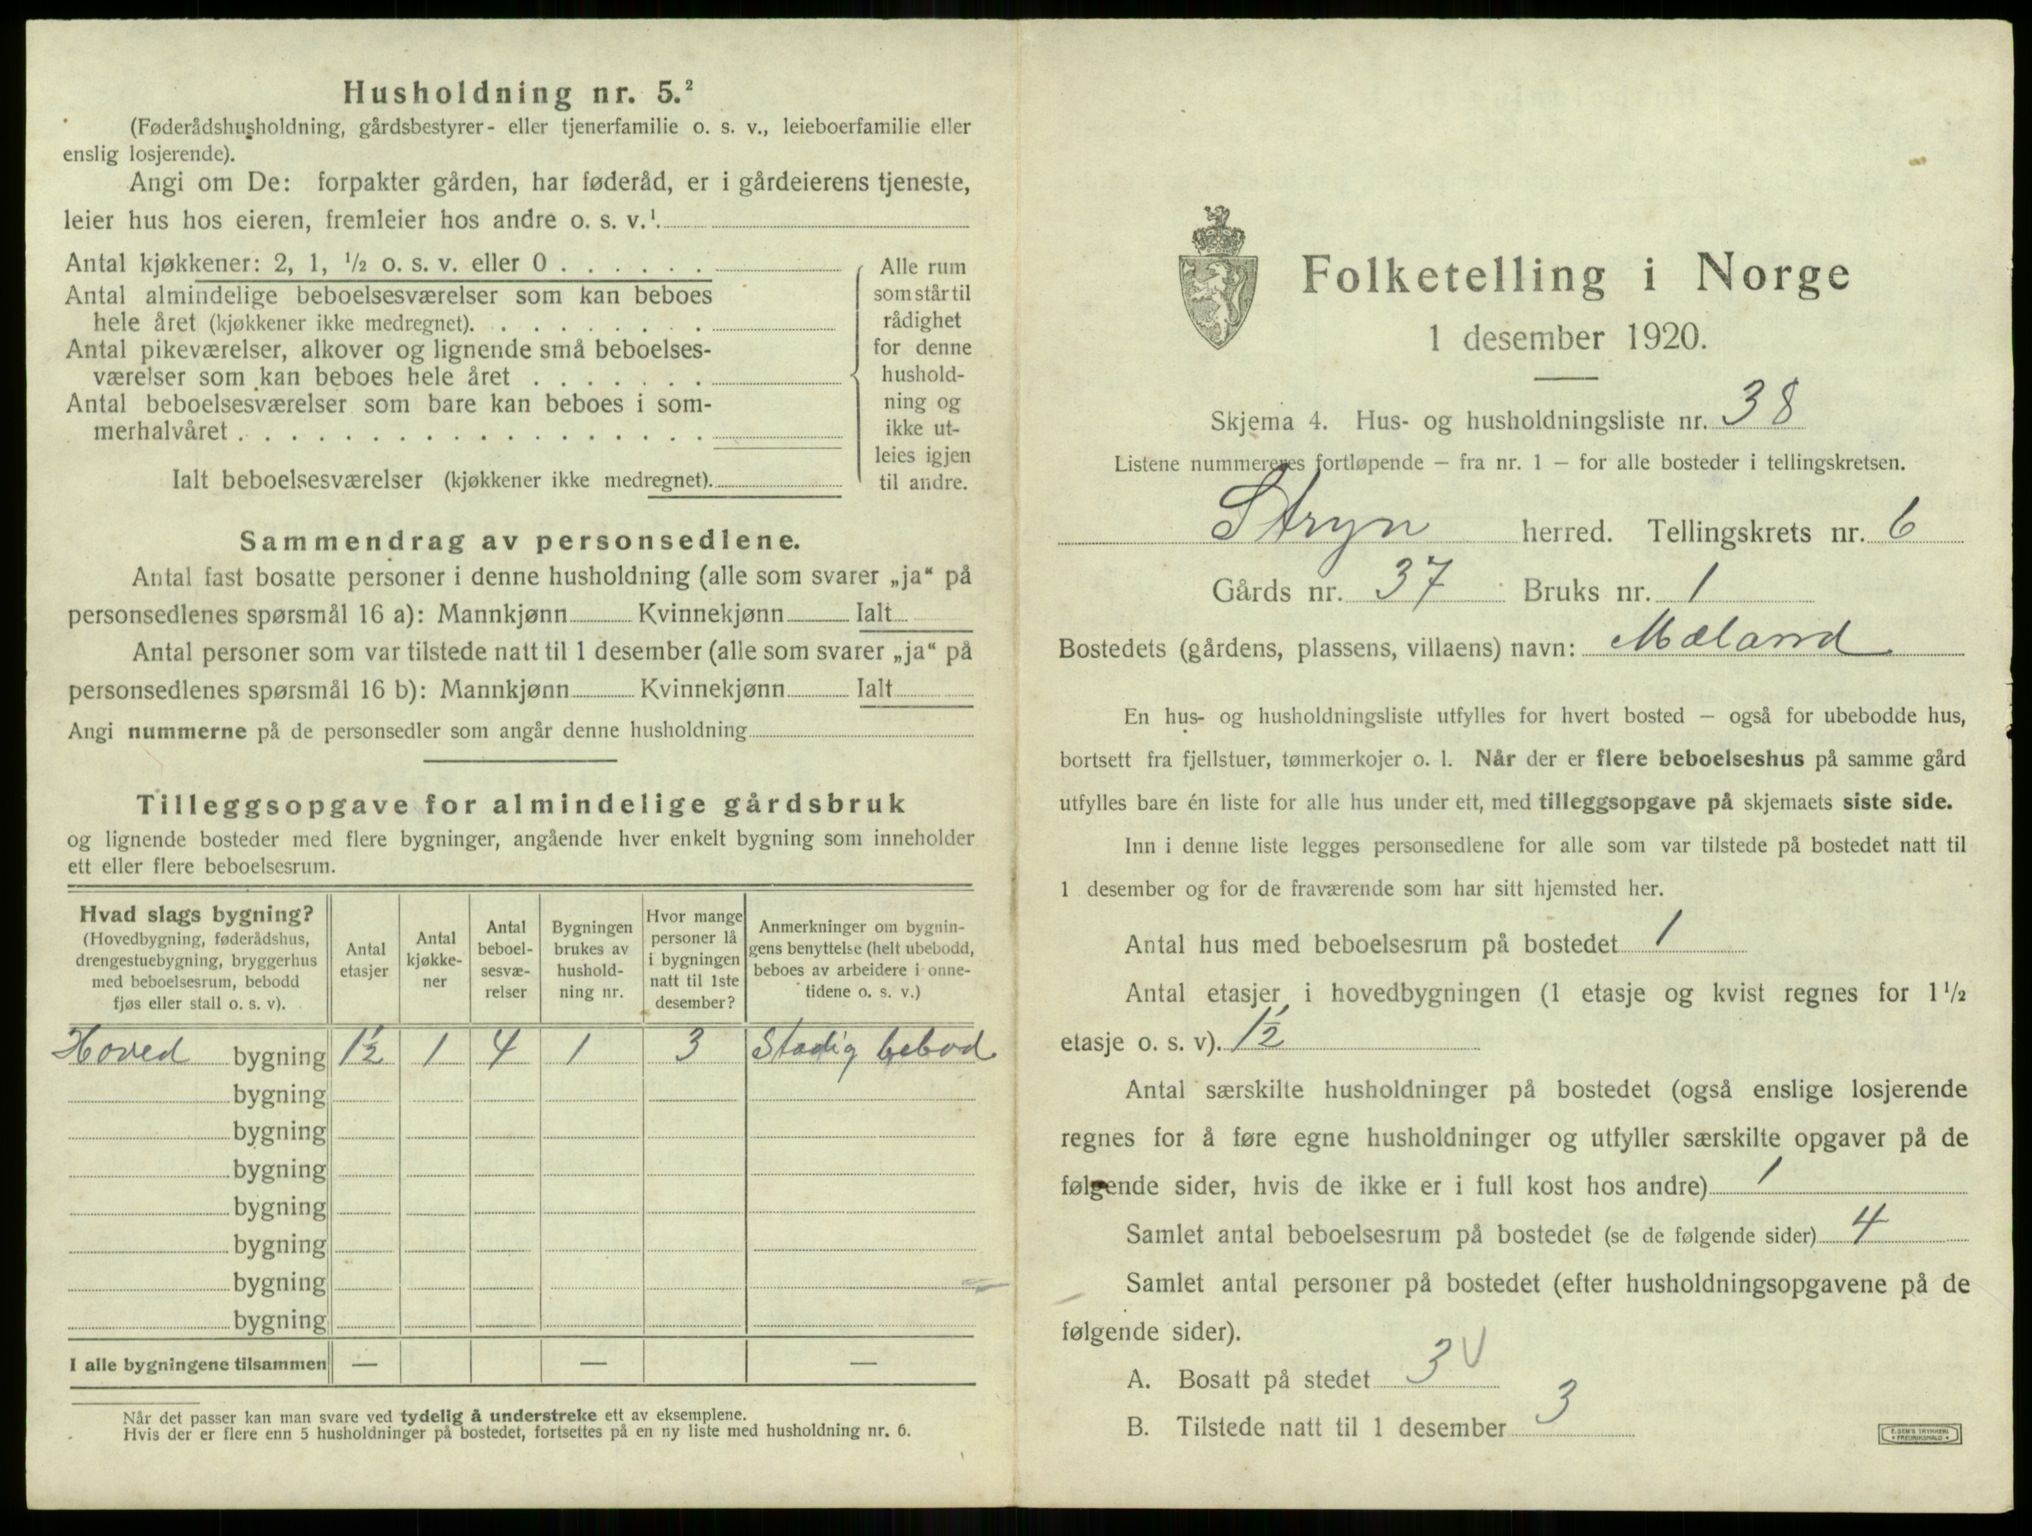 Husholdning nr. 5.²
(Føderådshusholdning, gårdsbestyrer- eller tjenerfamilie o. s. v., leieboerfamilie eller
enslig losjerende).
Angi om De: forpakter gården, har føderåd, er i gårdeierens tjeneste,
leier hus hos eieren, fremleier hos andre o. s. v.¹
Antal kjøkkener: 2, 1, ½ o. s. v. eller 0
Antal almindelige beboelsesværelser som kan beboes
hele året (kjøkkener ikke medregnet).
Antal pikeværelser, alkover og lignende små beboelses-
værelser som kan beboes hele året
Antal beboelsesværelser som bare kan beboes i som-
merhalvåret
Ialt beboelsesværelser (kjøkkener ikke medregnet).
Alle rum
som står til
rådighet
for denne
hushold-
ning og
ikke ut-
leies igjen
til andre.
Sammendrag av personsedlene.
Antal fast bosatte personer i denne husholdning (alle som svarer „ja“ på
personsedlenes spørsmål 16 a): Mannkjønn Kvinnekjønn Ialt
Antal personer som var tilstede natt til 1 desember (alle som svarer „ja“ på
personsedlenes spørsmål 16 b): Mannkjønn Kvinnekjønn Ialt
Angi nummerne på de personsedler som angår denne husholdning
Tilleggsopgave for almindelige gårdsbruk
og lignende bosteder med flere bygninger, angående hver enkelt bygning som inneholder
ett eller flere beboelsesrum.
Hvad slags bygning?
(Hovedbygning, føderådshus,
drengestuebygning, bryggerhus
med beboelsesrum, bebodd
fjøs eller stall o. s. v).
Antal
etasjer
Antal
kjøkke-
ner
Antal
beboel-
sesvæ-
relser
Bygningen
brukes av
hushold-
ning nr.
Hvor mange
personer lå
i bygningen
natt til 1ste
desember?
Anmerkninger om bygnin-
gens benyttelse (helt ubebodd,
beboes av arbeidere i onne-
tidene o. s. v.)
Hoved bygning 1½ 1 4 1 3 Stadig bebod
bygning
bygning
bygning
bygning
bygning
bygning
bygning
I alle bygningene tilsammen — — —
Når det passer kan man svare ved tydelig å understreke ett av eksemplene.
Hvis der er flere enn 5 husholdninger på bostedet, fortsettes på en ny liste med husholdning nr. 6.
Folketelling i Norge
1 desember 1920.
Skjema 4. Hus- og husholdningsliste nr. 38
Listene nummereres fortløpende – fra nr. 1 – for alle bosteder i tellingskretsen.
Stryn herred. Tellingskrets nr. 6
Gårds nr. 37 Bruks nr. 1
Bostedets (gårdens, plassens, villaens) navn: Mæland
En hus- og husholdningsliste utfylles for hvert bosted – også for ubebodde hus,
bortsett fra fjellstuer, tømmerkojer o. l. Når der er flere beboelseshus på samme gård
utfylles bare én liste for alle hus under ett, med tilleggsopgave på skjemaets siste side.
Inn i denne liste legges personsedlene for alle som var tilstede på bostedet natt til
1 desember og for de fraværende som har sitt hjemsted her.
Antal hus med beboelsesrum på bostedet 1
Antal etasjer i hovedbygningen (1 etasje og kvist regnes for 1½
etasje o. s. v). 1½
Antal særskilte husholdninger på bostedet (også enslige losjerende
regnes for å føre egne husholdninger og utfyller særskilte opgaver på de
følgende sider, hvis de ikke er i full kost hos andre) 1
Samlet antal beboelsesrum på bostedet (se de følgende sider) 4
Samlet antal personer på bostedet (efter husholdningsopgavene på de
følgende sider).
A. Bosatt på stedet 3 V
B. Tilstede natt til 1 desember 3
E. SEM'S TRYKKERI
• FREDRIKSHALD •